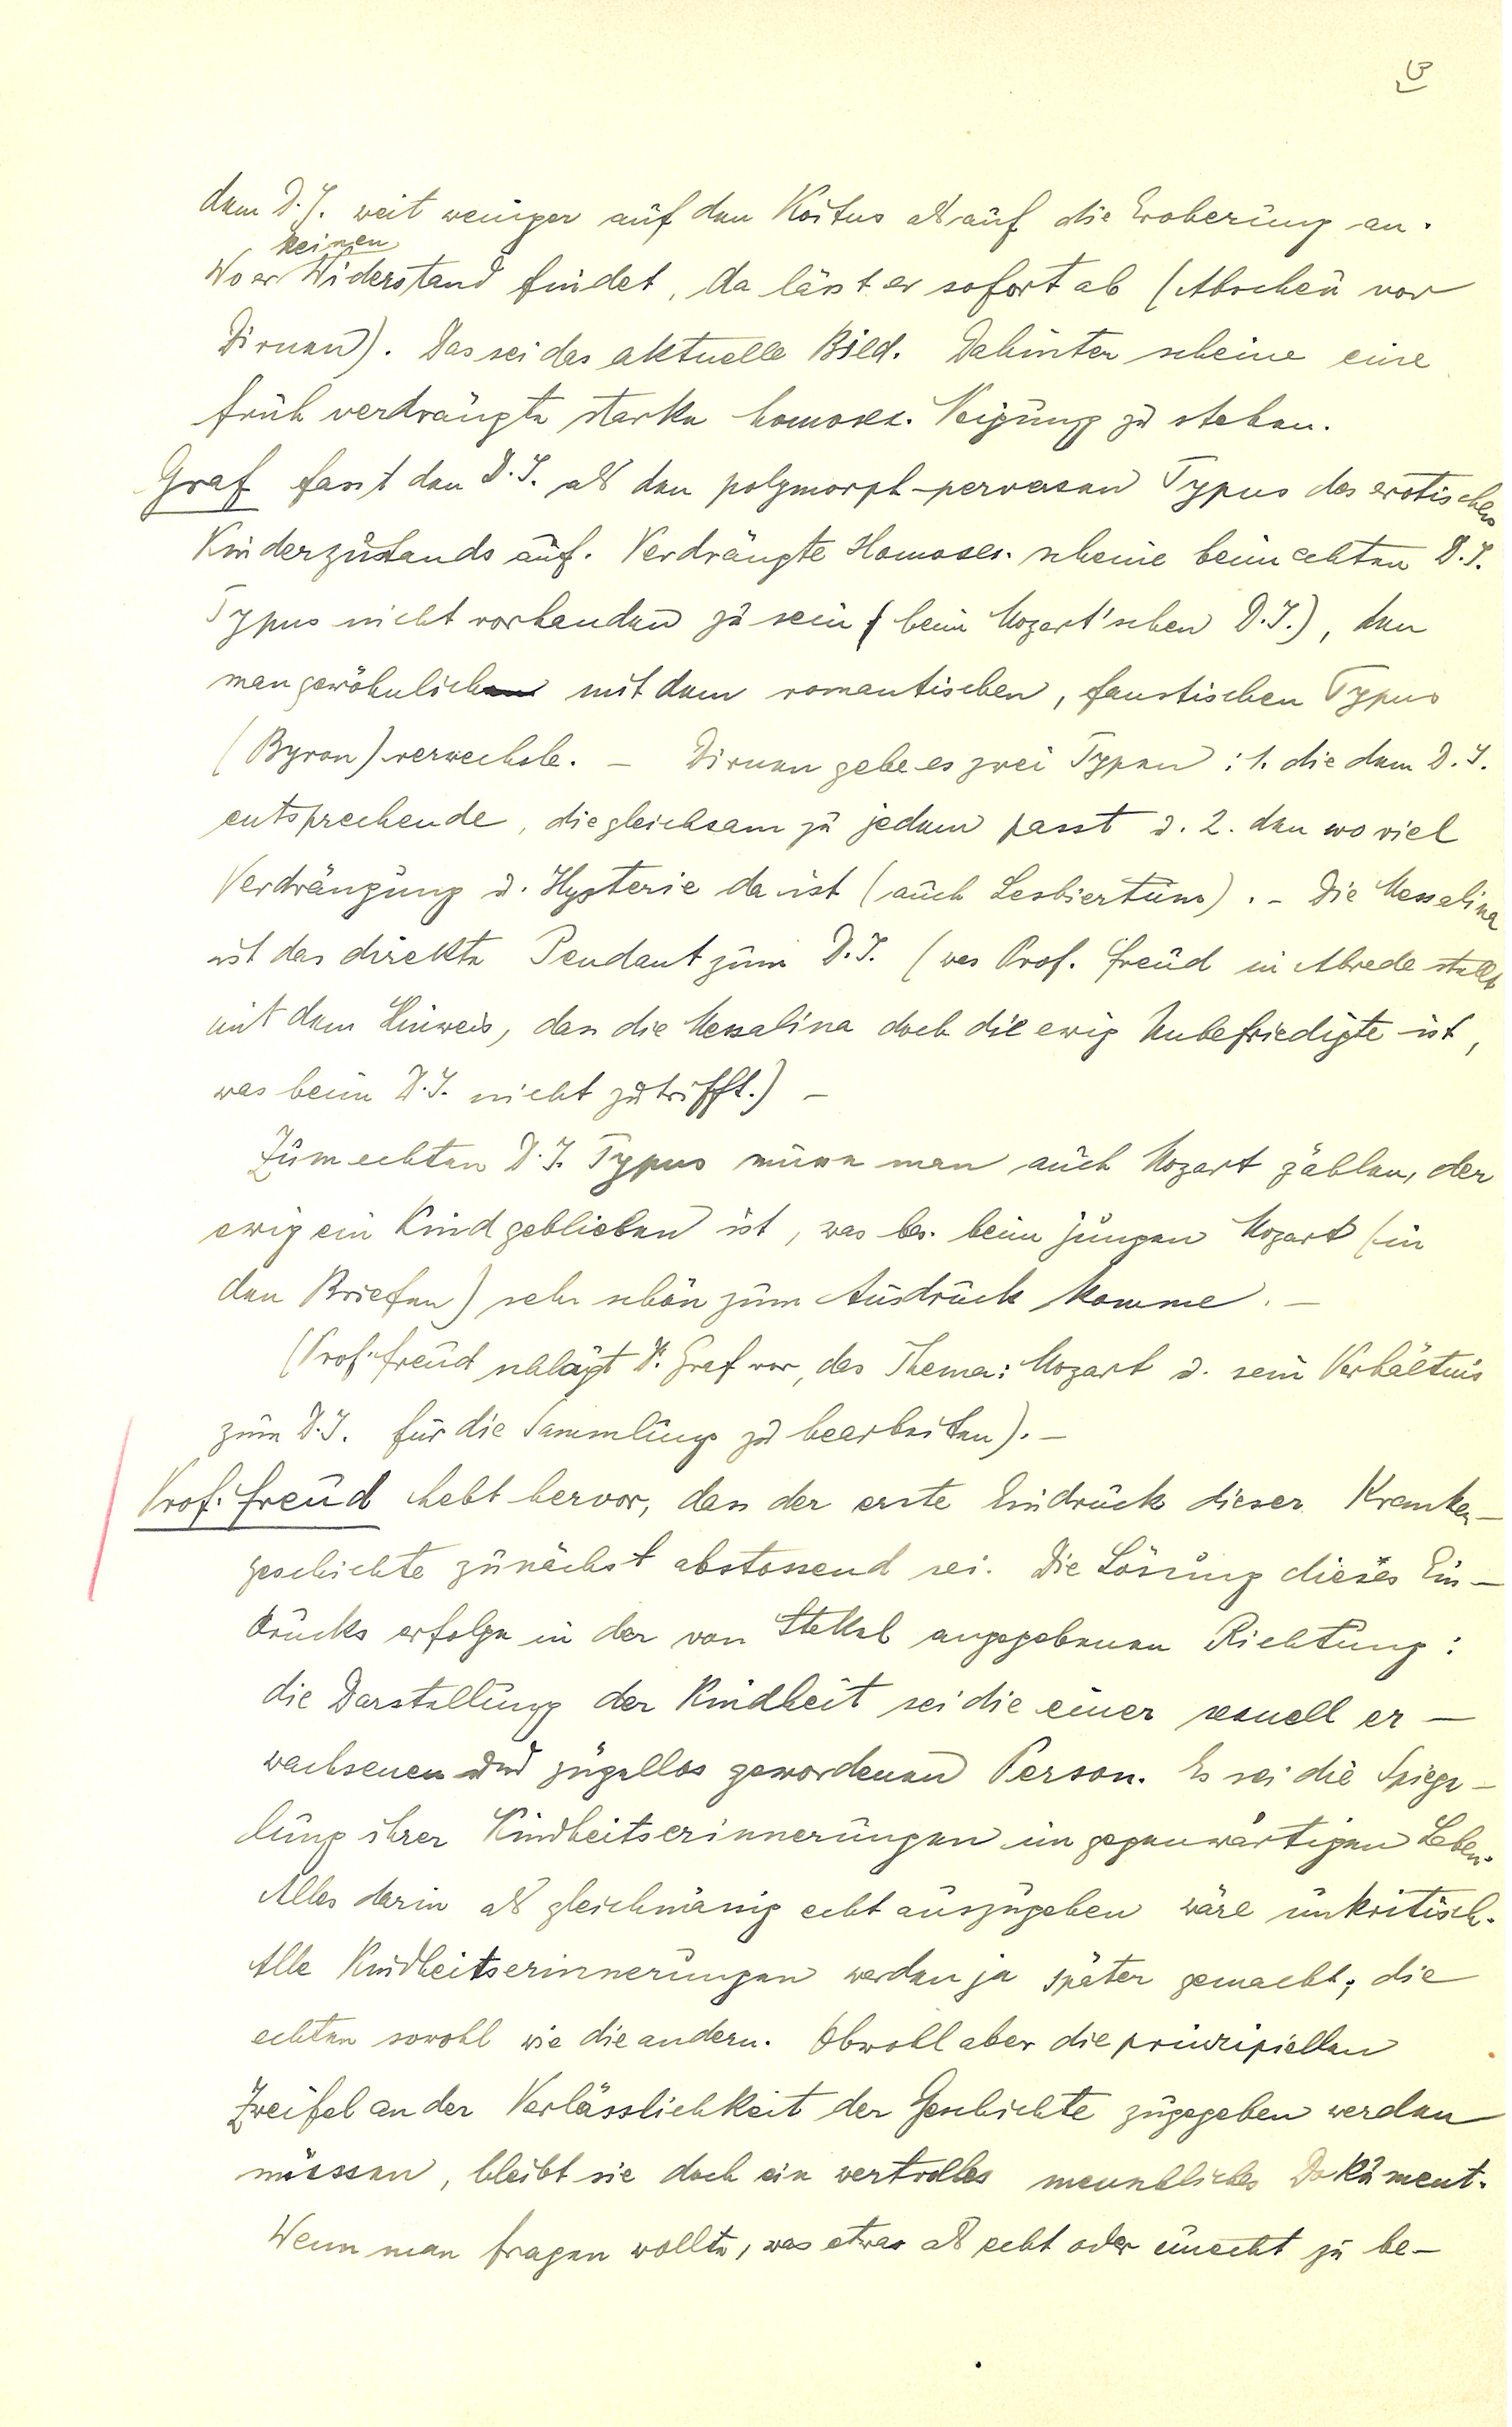 3
dem D.J. weit weniger auf den Koitus als auf die Eroberung an.
keinen
Wo er Widerstand findet, da lässt er sofort ab (Abscheu vor
Dirnen). Das sei das aktuelle Bild. Dahinter scheine eine
früh verdrängte starke homosex. Neigung zu stehen.
Graf fasst den D.J. als den polymorph-perversen Typus des erotischen
Kinderzustands auf. Verdrängte Homosex. scheine beim echten D.J.
Typus nicht vorhanden zu sein (beim Mozart'schen D.J.), den
man gewöhnlich mit dem romantischen, faustischen Typus
(Byron) verwechsle. – Dirnen gebe es zwei Typen: 1. die dem D.J.
entsprechende, die gleichsam zu jedem passt u. 2. den wo viel
Verdrängung u. Hysterie da ist (auch Lesbiertum). – Die Messalina
ist das direkte Pendant zum D.J. (was Prof. Freud in Abrede stellt
mit dem Hinweis, dass die Messalina doch die ewig Unbefriedigte ist,
was beim D.J. nicht zutrifft.) –
Zum echten D.J. Typus müsse man auch Mozart zählen, der
ewig ein Kind geblieben ist, was bes. beim jungen Mozart (in
den Briefen) sehr schön zum Ausdruck komme. –
(Prof. Freud schlägt Dr. Graf vor, das Thema: Mozart u. sein Verhältnis
zum D.J. für die Sammlung zu bearbeiten). –
Prof. Freud hebt hervor, dass der erste Eindruck dieser Kranken-
geschichte zunächst abstossend sei. Die Lösung dieses Ein-
drucks erfolge in der von Stekel angegebenen Richtung:
die Darstellung der Kindheit sei die einer sexuell er-
wachsenen und zügellos gewordenen Person. Es sei die Spiege-
lung ihrer Kindheitserinnerungen im gegenwärtigen Leben.
Alles darin als gleichmässig echt auszugeben wäre unkritisch.
Alle Kindheitserinnerungen werden ja später gemacht; die
echten sowohl wie die andern. Obwohl aber die prinzipiellen
Zweifel an der Verlässlichkeit der Geschichte zugegeben werden
müssen, bleibt sie doch ein wertvolles menschliches Dokument.
Wenn man fragen wollte, was etwas als echt oder unecht zu be-